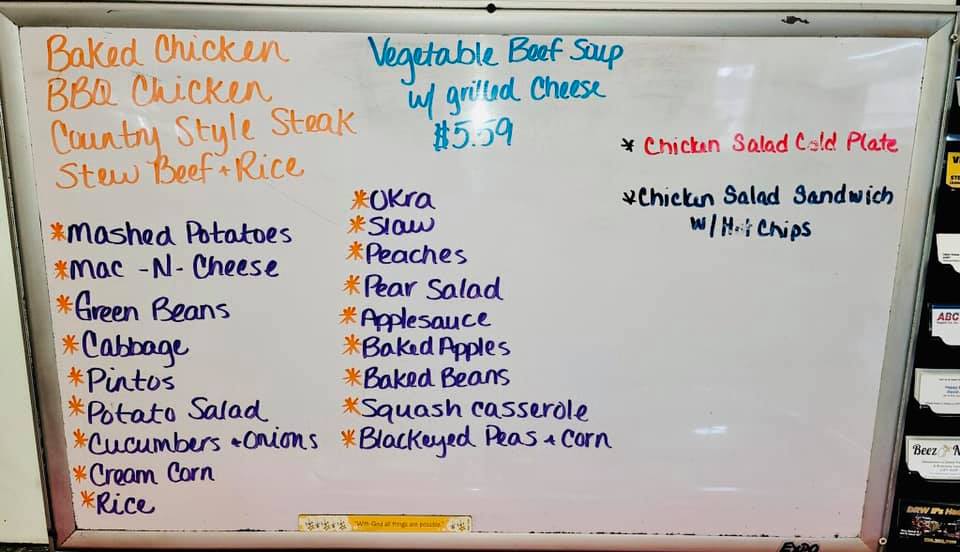 Baked Chicken
BBQ Chicken
Country Style Steak
Stew Beef + Rice
Vegetable Beef Soup
w/ grilled Cheese
$5.59
* Chicken Salad Cold Plate
* Chicken Salad Sandwich
w/ Hot Chips
* Mashed Potatoes
* Mac -N- Cheese
* Green Beans
* Cabbage
* Pintos
* Potato Salad
* Cucumbers + Onions
* Cream Corn
* Rice
* Okra
* Slaw
* Peaches
* Pear Salad
* Applesauce
* Baked Apples
* Baked Beans
* Squash casserole
* Blackeyed Peas + Corn
"With God all things are possible."
EXPO
ABC
Beez